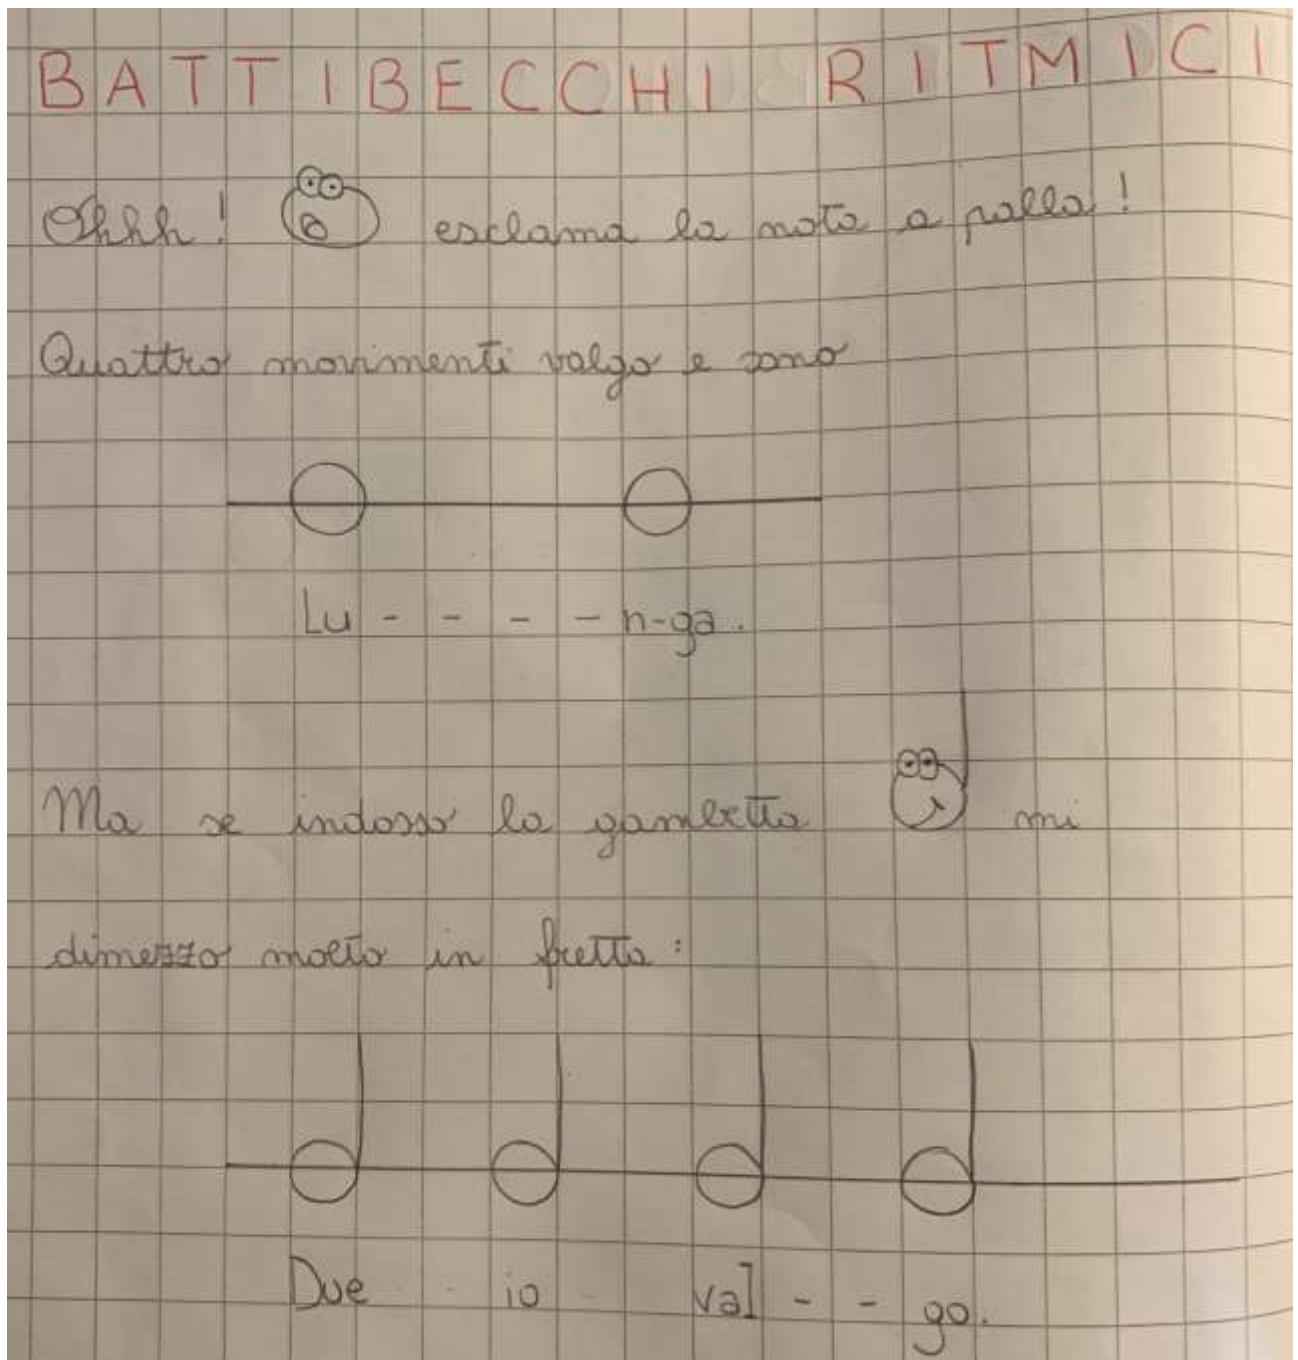 BATTIBECCHI RITMICI
Ohhh! esclama la nota a palla!
Quattro movimenti valgo e sono
Lu - - - - n-ga.
Ma se indosso la gambetta mi
dimezzo molto in fretta:
Due io val - - go.